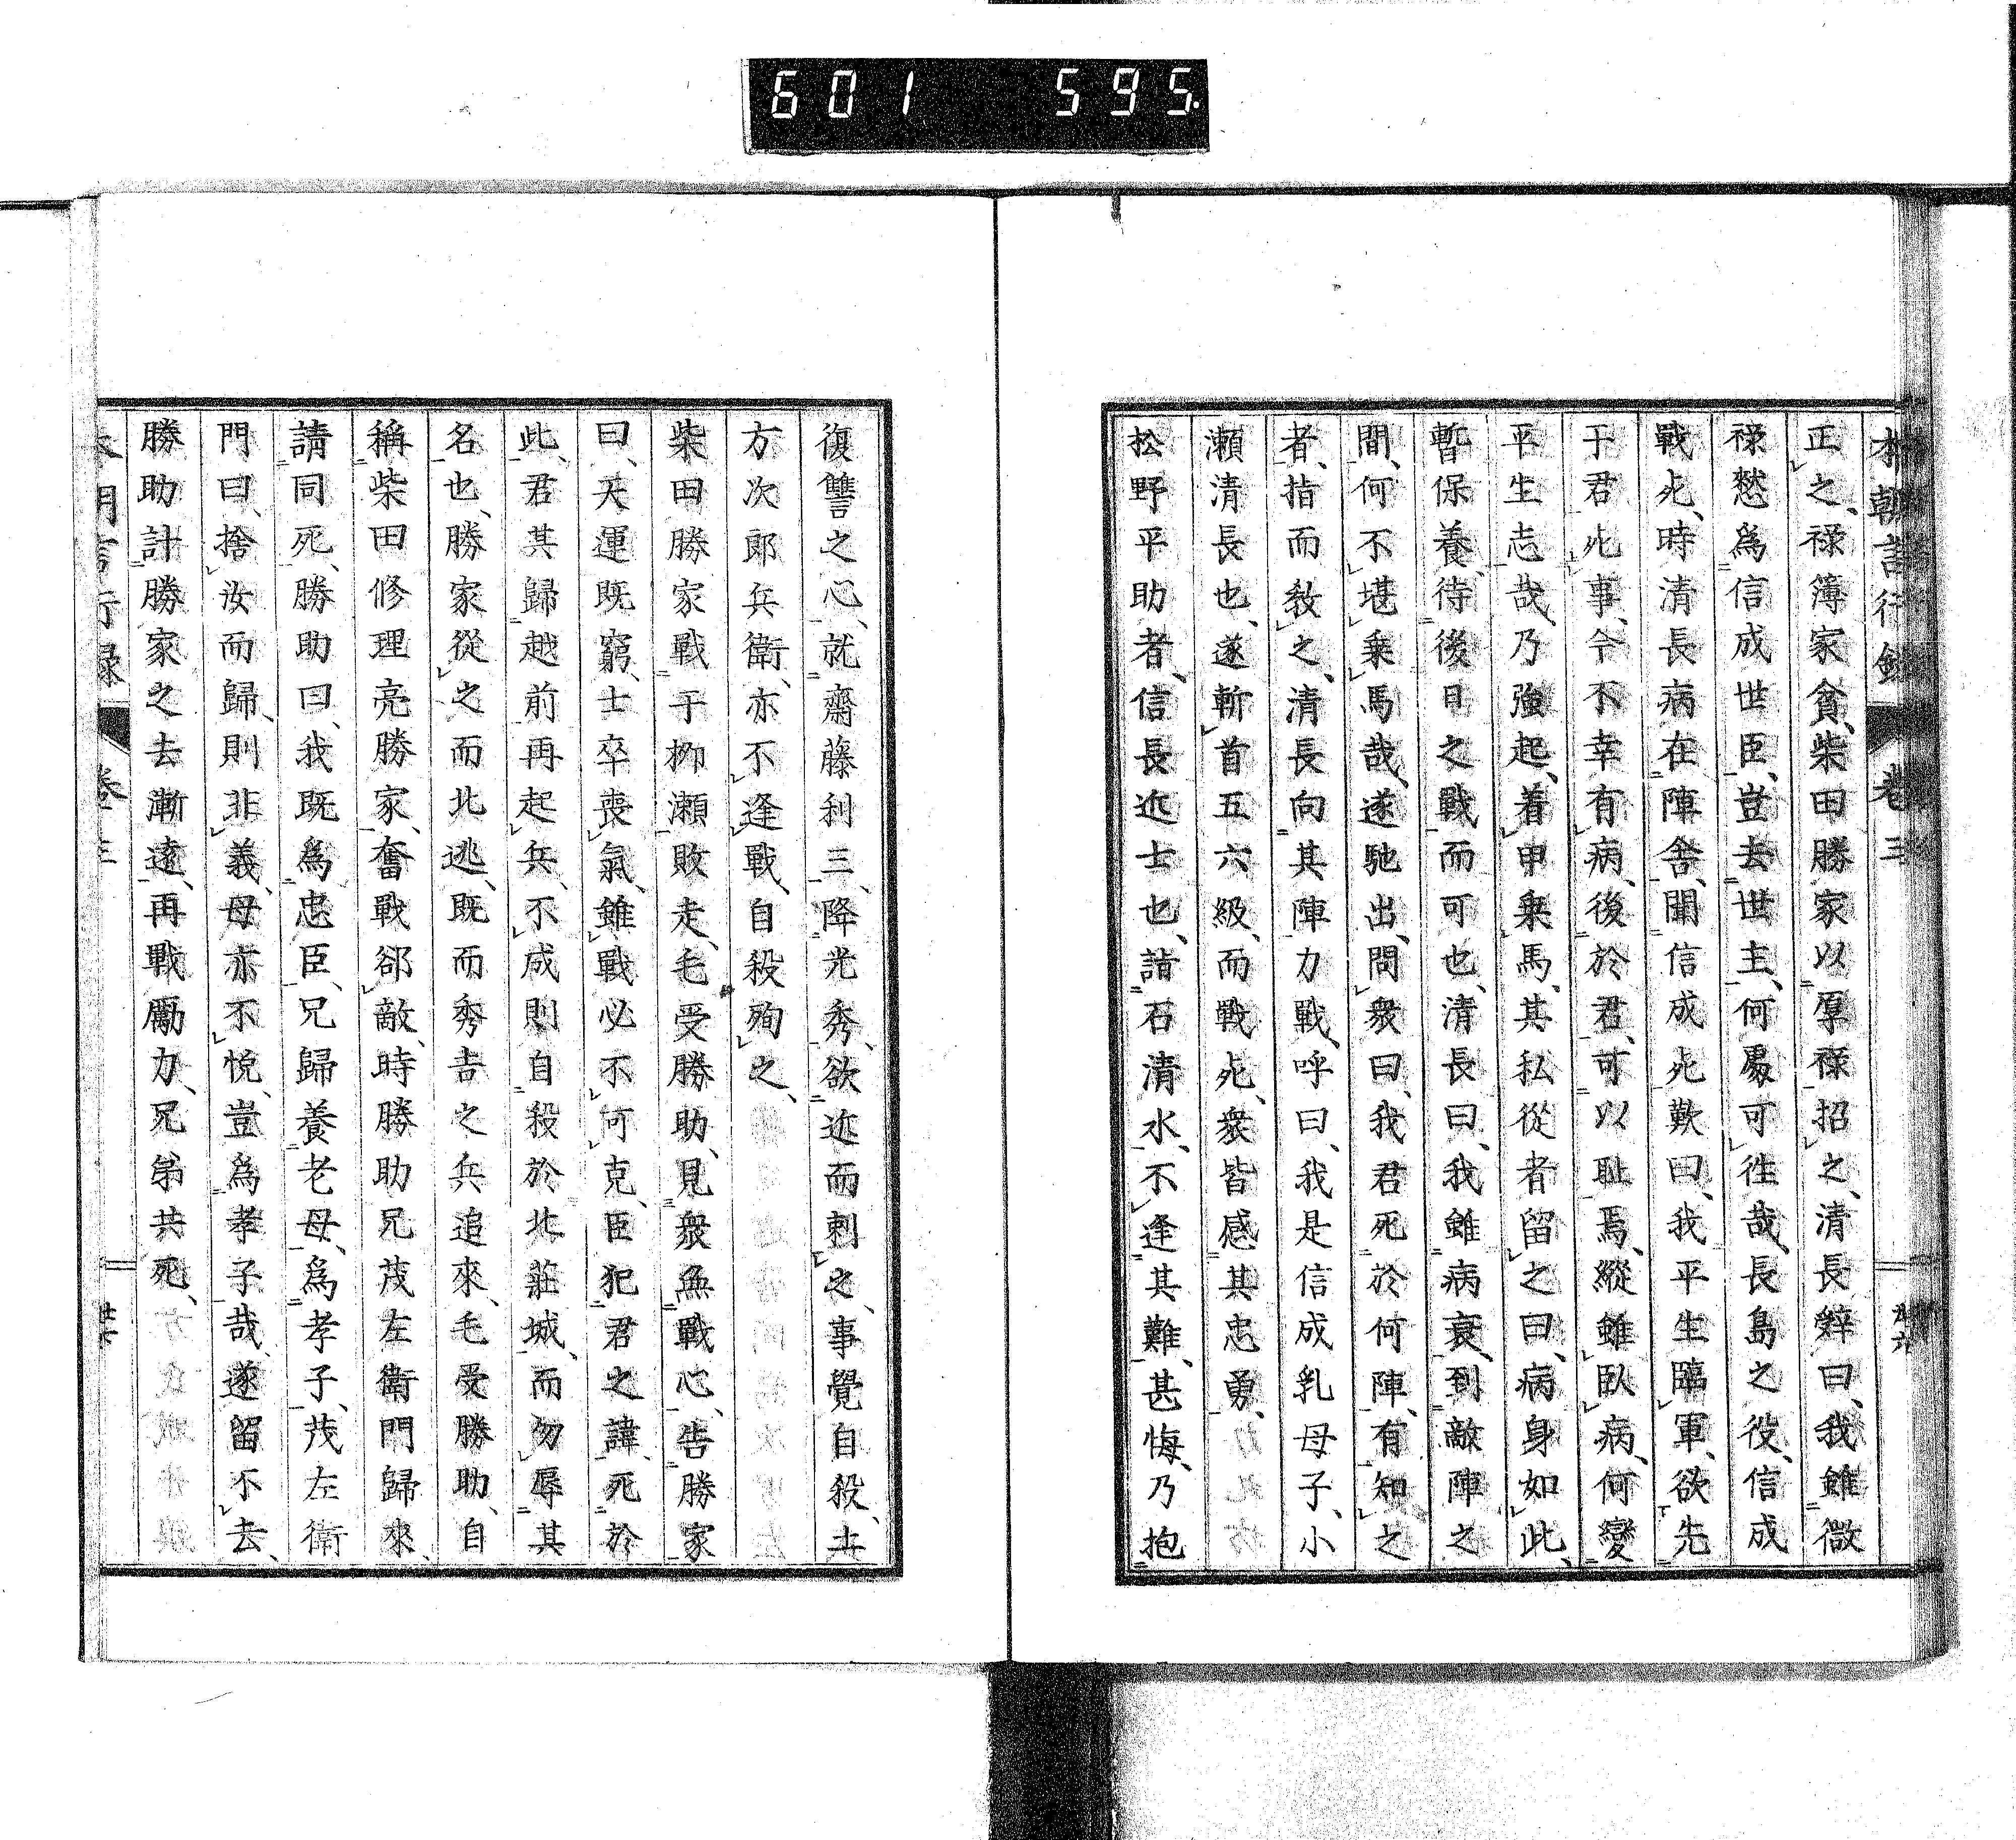 601 595
本朝言行錄 卷三
正之、祿簿家貧、柴田勝家以厚祿招之、清長辭曰、我雖微
祿愁爲信成世臣、豈去世主、何處可往哉、長島之役、信成
戰死、時清長病在陣舍、聞信成死歎曰、我平生臨軍、欲先
于君死事、今不幸有病、後於君、可以耻焉、縱雖臥病、何變
平生志哉、乃強起、着甲乗馬、其私從者留之曰、病身如此、
暫保養、待後日之戰而可也、清長曰、我雖病衰、到敵陣之
間、何不堪乗馬哉、遂馳出、問衆曰、我君死於何陣、有知之
者、指而敎之、清長向其陣力戰、呼曰、我是信成乳母子、小
瀨清長也、遂斬首五六級、而戰死、衆皆感其忠勇、
松野平助者、信長近士也、詣石清水、不逢其難、甚悔、乃抱
復讐之心、就齋藤利三、降光秀、欲近而刺之、事覺自殺、土
方次郎兵衛、亦不逢戰、自殺殉之、
柴田勝家戰于柳瀨敗走、毛受勝助、見衆無戰心、告勝家
曰、天運既窮、士卒喪氣、雖戰必不可克、臣犯君之諱、死於
此、君其歸越前再起兵、不成則自殺於北莊城、而勿辱其
名也、勝家從之而北逃、既而秀吉之兵追來、毛受勝助、自
稱柴田修理亮勝家、奮戰郤敵、時勝助兄茂左衛門歸來、
請同死、勝助曰、我既爲忠臣、兄歸養老母、爲孝子、茂左衛
門曰、捨汝而歸、則非義、母亦不悅、豈爲孝子哉、遂留不去、
勝助計勝家之去漸遠、再戰勵力、兄弟共死、
本朝言行錄 卷三